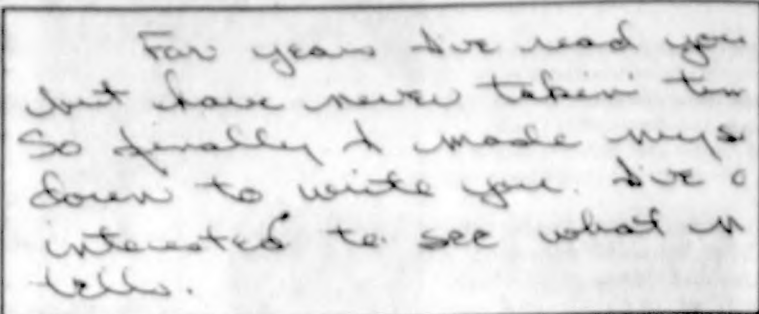 For years I've read you
but have never takin' tim
So finally I made mys
down to write you. I've
interested to see what m
tells.